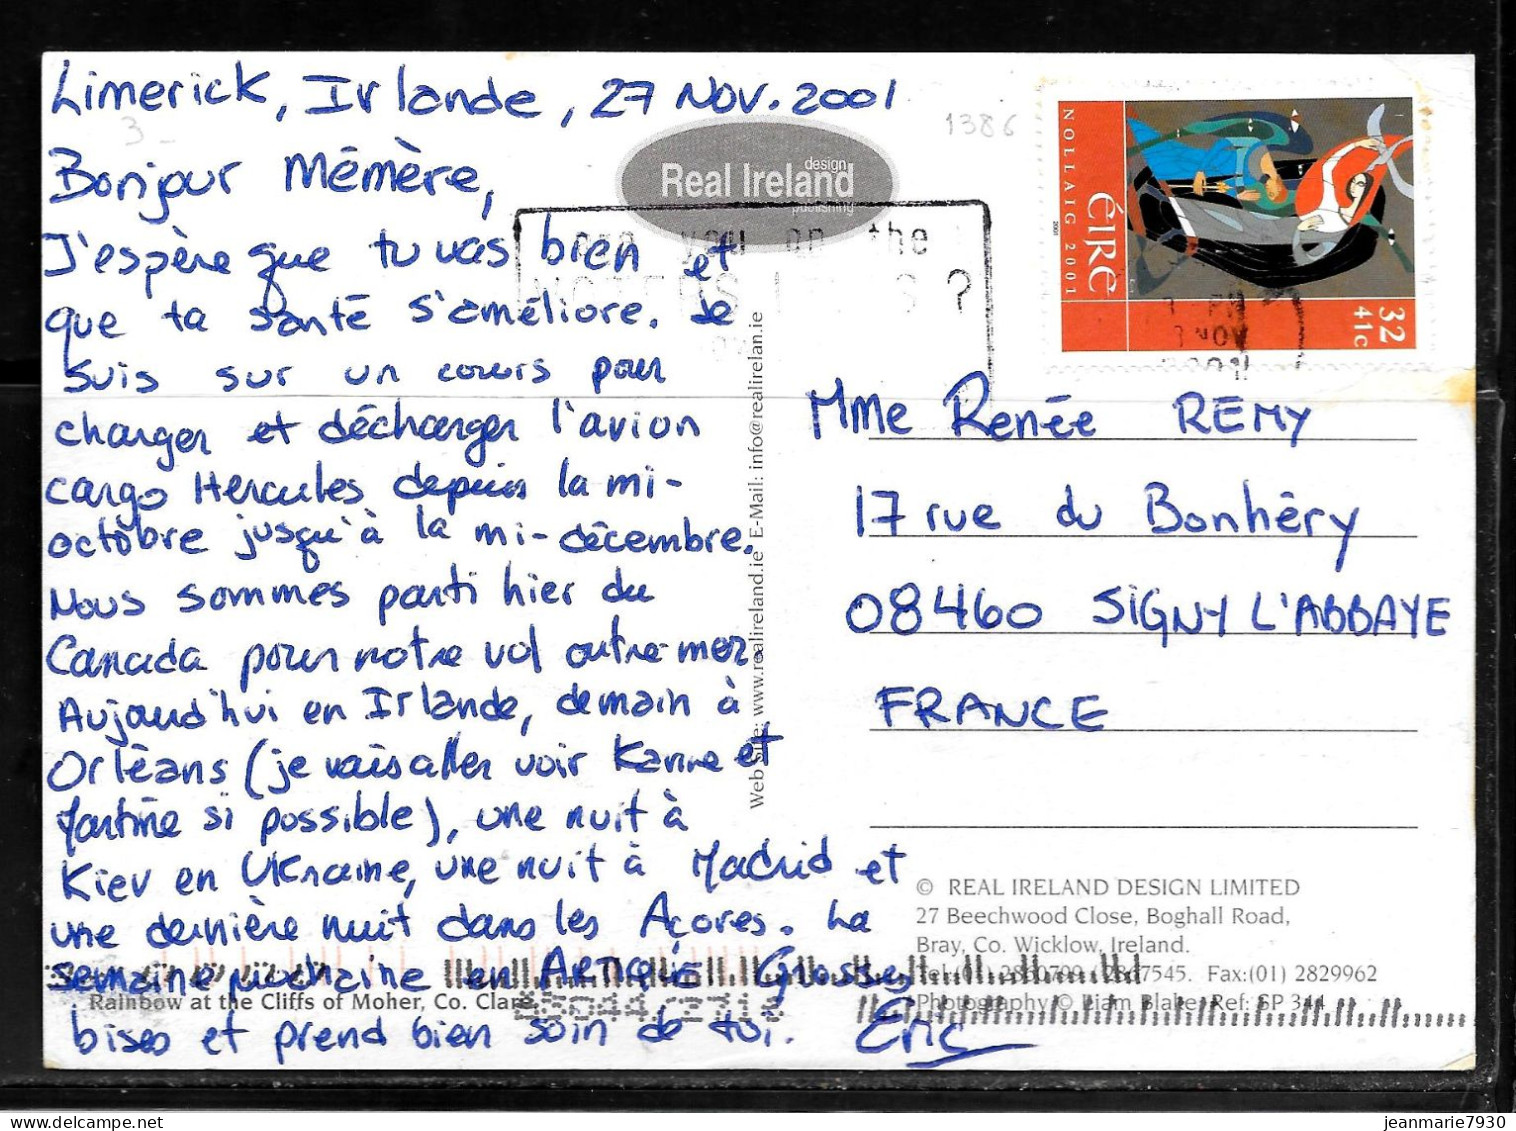 Limerick, Irlande, 27 Nov. 2001
Bonjour Mémère,
J'espère que tu vas bien et
que ta santé s'améliore. Je
suis sur un cours pour
charger et décharger l'avion
cargo Hercules depuis la mi-
octobre jusqu'à la mi-décembre.
Nous sommes parti hier du
Canada pour notre vol outre-mer.
Aujourd'hui en Irlande, demain à
Orléans (je vais aller voir Karine et
Martine si possible), une nuit à
Kiev en Ukraine, une nuit à Madrid et
une dernière nuit dans les Açores. La
semaine prochaine en Grosses
bises et prend bien soin de toi. Eric
3-
1386
design
Real Ireland
publishing
are you on the
?
NOLLAIG 2001
ÉIRE
2001
32
41c
NOV
2001
Mme Renée REMY
17 rue du Bonhéry
08460 SIGNY L'ABBAYE
FRANCE
Web site: www.realireland.ie E-Mail: info@realirelan.ie
© REAL IRELAND DESIGN LIMITED
27 Beechwood Close, Boghall Road,
Bray, Co. Wicklow, Ireland.
Tel:(01) 2860799 / 2867545. Fax:(01) 2829962
Photography © Liam Blake, Ref: SP 344
Rainbow at the Cliffs of Moher, Co. Clare
jeanmarie7930